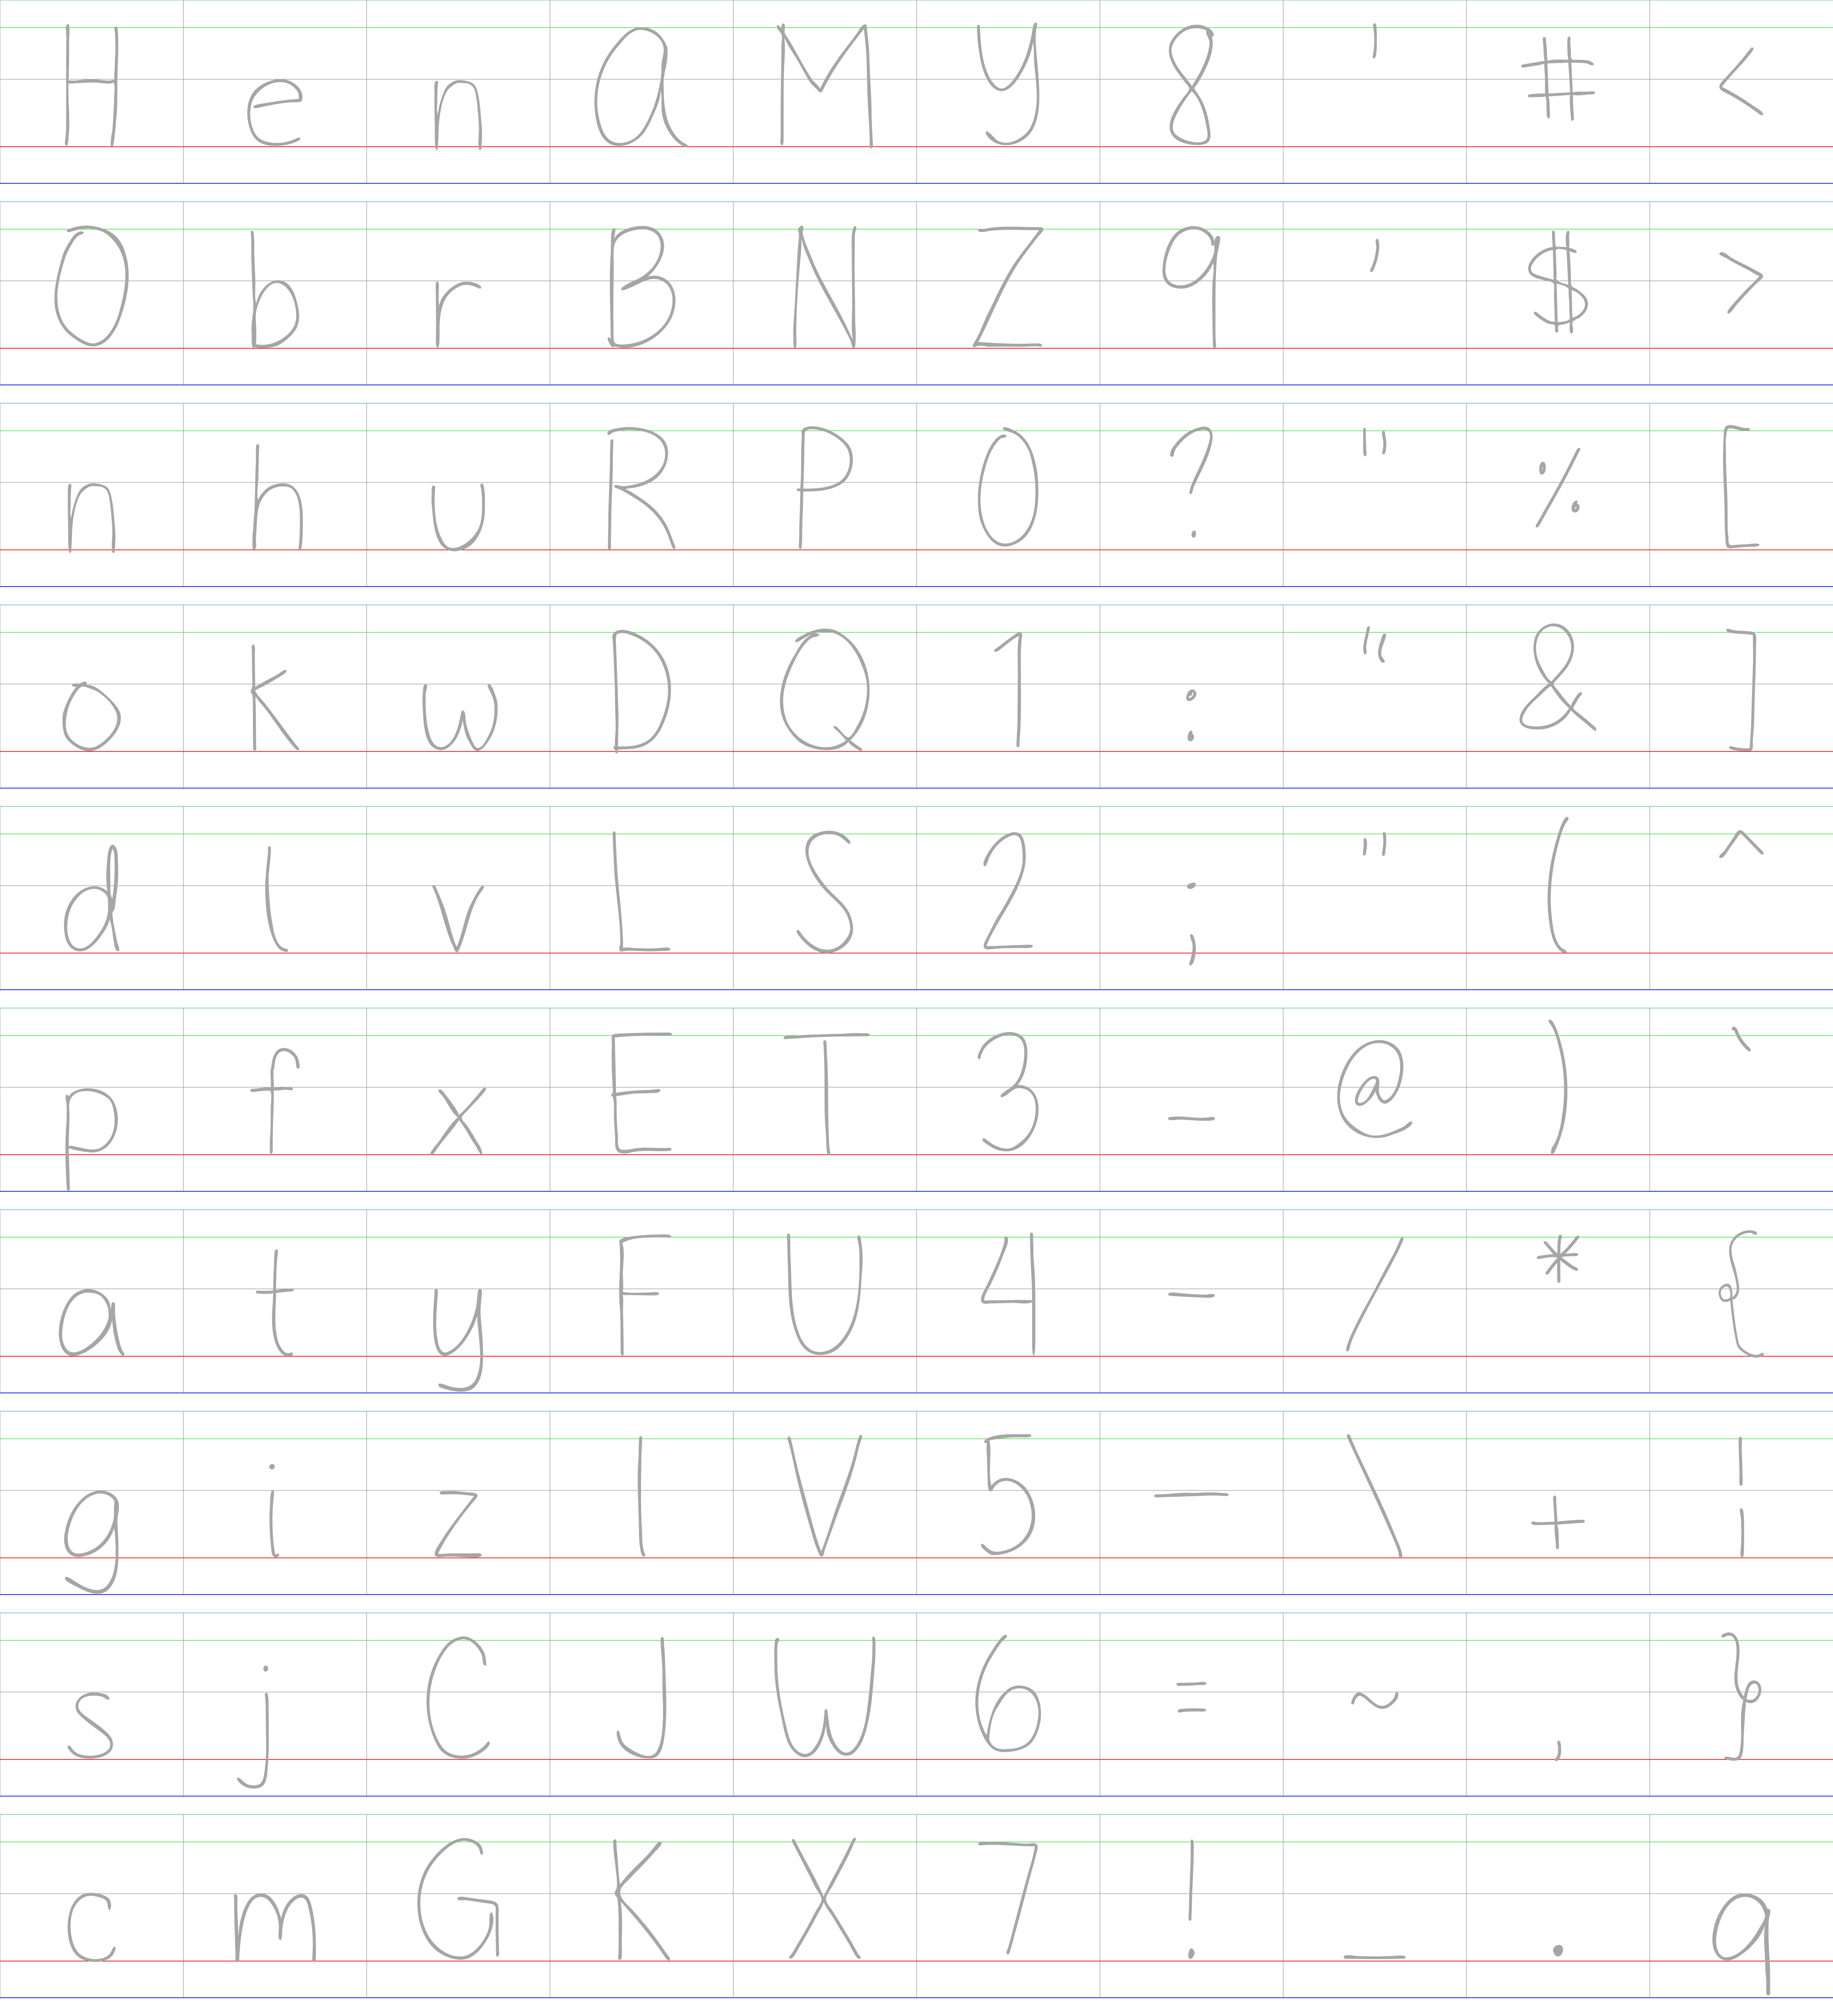 H e n a M y 8 ' # <
O b r B N Z 9 ' $ >
n h u R P 0 ? " % [
o k w D Q 1 : " & ]
d l v L S 2 ; " ( ^
p f x E T 3 - @ ) `
a t y F U 4 – / * {
g i z I V 5 — \ + ¦
s j C J W 6 = ~ , }
c m G K X 7 ! _ . q